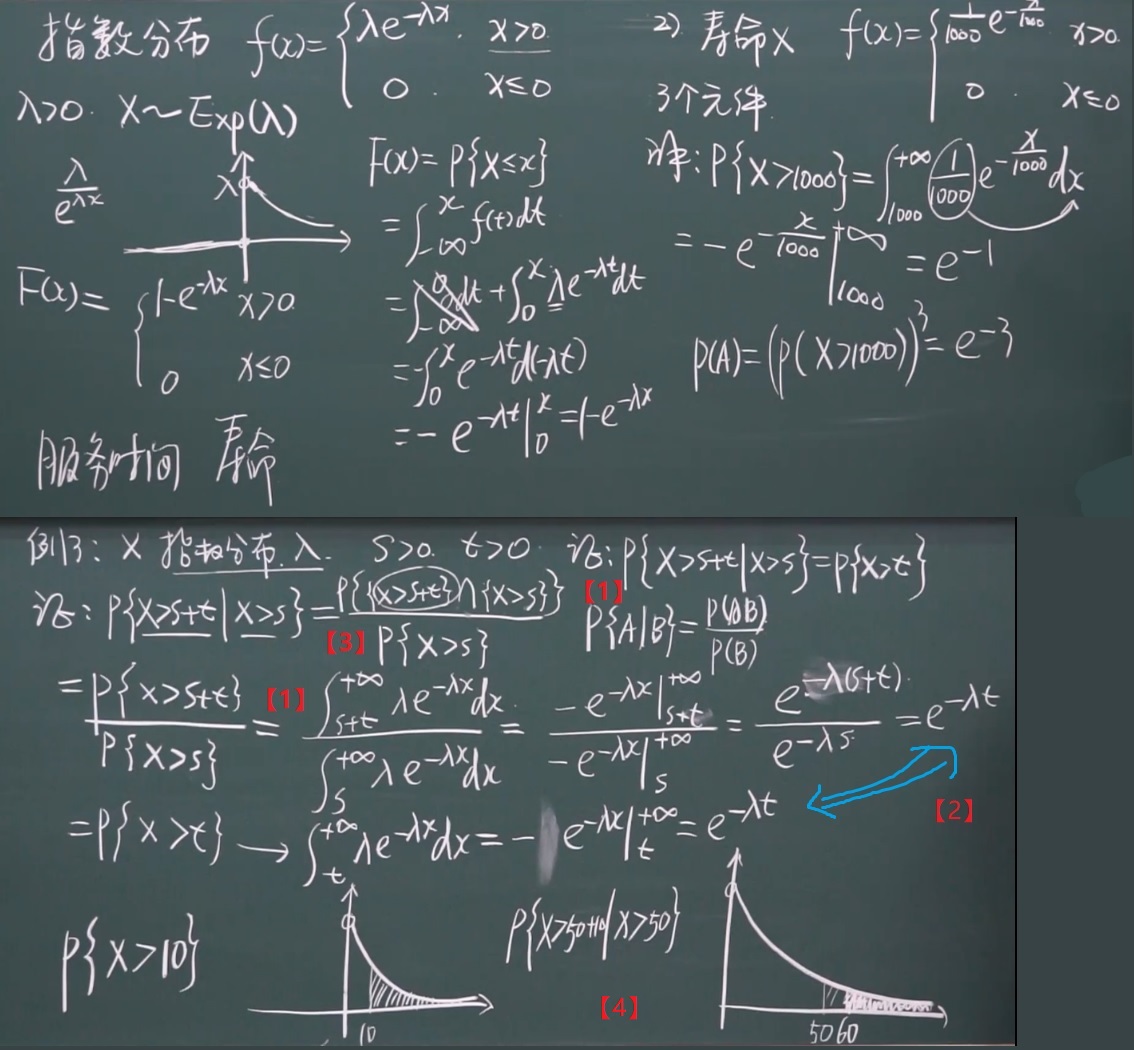 指数分布 f(x)={λe^{-λx}. x>0.
0. x≤0
λ>0. X~Exp(λ)
λ/e^{λx}
λ
F(x)={1-e^{-λx} x>0
0 x≤0
服务时间 寿命
F(x)=P{X≤x}
=∫_{-∞}^{x} f(t)dt
=∫_{-∞}^{0} 0dt+∫_{0}^{x} λe^{-λt}dt
=-∫_{0}^{x} e^{-λt}d(-λt)
=-e^{-λt}|_{0}^{x}=1-e^{-λx}
2) 寿命X f(x)={1/1000 e^{-x/1000} x>0.
0. x≤0
3个元件.
解: P{X>1000}=∫_{1000}^{+∞} (1/1000) e^{-x/1000}dx
=-e^{-x/1000}|_{1000}^{+∞}=e^{-1}
P(A)=(P(X>1000))^3=e^{-3}
例13: X 指数分布.λ. s>0. t>0. 证:P{X>s+t|X>s}=P{X>t}
证: P{X>s+t|X>s}=P{{X>s+t}∩{X>s}}/P{X>s} 【1】
【3】 P{A|B}=P(AB)/P(B)
=P{X>s+t}/P{X>s} 【1】 =∫_{s+t}^{+∞} λe^{-λx}dx/∫_{s}^{+∞} λe^{-λx}dx=-e^{-λx}|_{s+t}^{+∞}/-e^{-λx}|_{s}^{+∞}=e^{-λ(s+t)}/e^{-λs}=e^{-λt}
【2】
=P{X>t}→∫_{t}^{+∞} λe^{-λx}dx=-e^{-λx}|_{t}^{+∞}=e^{-λt}
P{X>10}
10
P{X>50+10|X>50}
【4】
50 60